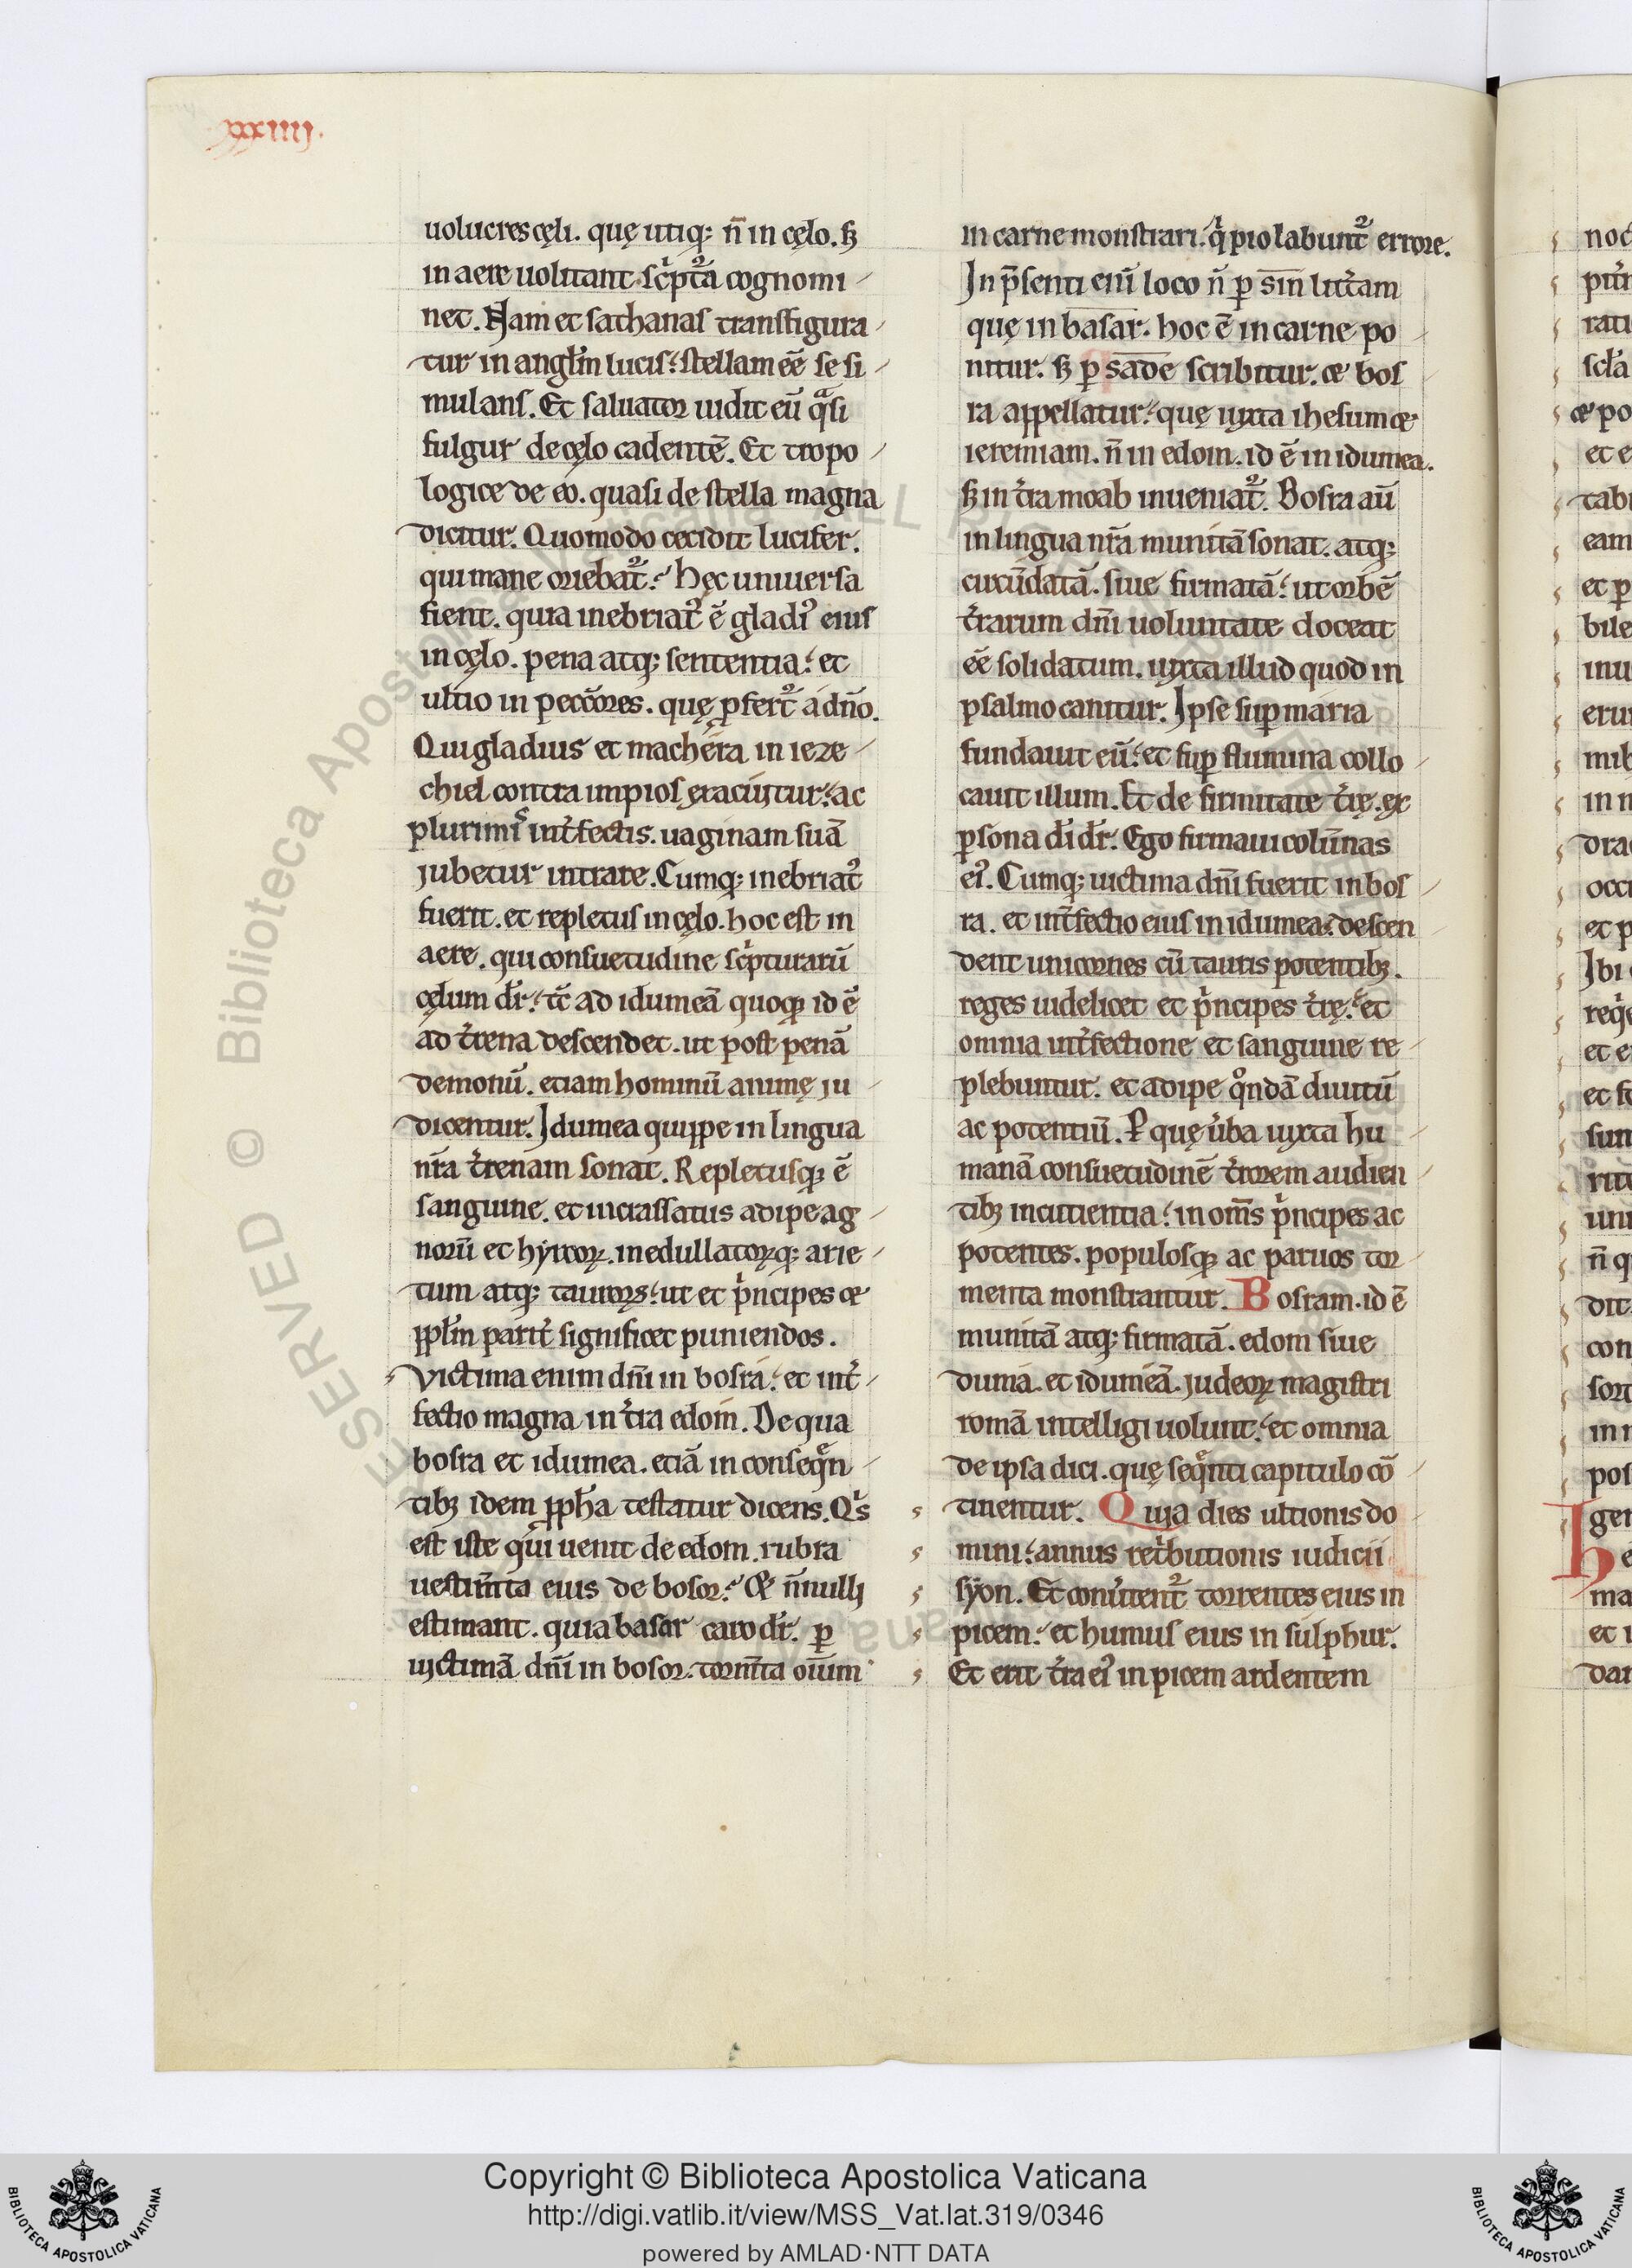 .xxxiiii.
uolucres cęli. quę utiq; n̄ in cęlo. sꝫ
in aere uolitant. sc̍pt᷑a cognomi-
net. Nam et sathanas transfigura-
tur in angl̄m lucis: stellam eē se si-
mulans. Et saluator uidit eū qͣsi
fulgur de cęlo cadentē. Et tropo-
logice de eo. quasi de stella magna
dicitur. Quomodo cecidit lucifer.
qui mane oriebat᷑? Hęc uniuersa
fient. quia inebriat᷑ ē gladi᷒ eius
in cęlo. pena atq; sententia: et
ultio in pecc̄ores. quę ꝓfert᷑ a dn̄o.
Qui gladius et machera in ieze-
chiel contra impios exacuitur: ac
plurimis int̄fectis. uaginam suā
jubetur intrare. Cumq; inebriat᷒
fuerit. et repletus in cęlo. hoc est in
aere. qui consuetudine sc̍pturarū
cęlum dr̄: tc̄ ad idumeā quoqꝫ id ē
ad t̄rena descendet. ut post penā
demonū. etiam hominū animę ju-
dicentur. Idumea quippe in lingua
nr̄a t̄renam sonat. Repletusqꝫ ē
sanguine. et incrassatus adipe ag-
norū et hyrcoꝝ. medullatoꝝq; arie-
tum atq; tauroꝝ: ut et p̍ncipes et
ppl̄m parit̄ significet puniendos.
Victima enim dn̄i in bosra: et int̄-
fectio magna in t̄ra edom. De qua
bosra et idumea. etiā in conseqͤn-
tibꝫ idem ꝓph̄a testatur dicens. Qͥs
est iste qui uenit de edom. rubra
uestim̄ta eius de bosor? Et n̄nulli
estimant. quia basar caro dr̄. ꝑ
uictimā dn̄i in bosor. torm̄ta oīum
in carne monstrari. qͥ pio labunt᷑ errore.
In p̄senti enī loco n̄ ꝑ sin litt̄am
quę in basar. hoc ē in carne po-
nitur. sꝫ ꝑ sade scribitur. et bos
ra appellatur: quę iuxta ihesum et
ieremiam. n̄ in edom. id ē in idumea.
sꝫ in t̄ra moab inueniat᷑. Bosra aū
in lingua nr̄a munitā sonat. atq;
circūdatā. siue firmatā: ut orbē
t̄rarum dn̄i uoluntate doceat
eē solidatum. iuxta illud quod in
psalmo canitur. Ipse suꝑ maria
fundauit eū: et suꝑ flumina collo-
cauit illum. Et de firmitate t̄rę. ex
ꝑsona dī dr̄. Ego firmaui colūnas
ei᷒. Cumq; uictima dn̄i fuerit in bos-
ra. et int̄fectio eius in idumea: descen-
dent unicornes cū tauris potentibꝫ.
reges uidelicet et p̍ncipes t̄rę: et
omnia int̄fectione et sanguine re-
plebuntur. et adipe qͦndā diuitū
ac potentiū. P quę ūba iuxta hu-
manā consuetudinē t̄rorem audien-
tibꝫ incutientia: in om̄s p̍ncipes ac
potentes. populosqꝫ ac paruos tor-
menta monstrantur. Bosram. id ē
munitā atq; firmatā. edom siue
dumā. et idumeā. judeoꝝ magistri
romā intelligi uolunt: et omnia
de ipsa dici. quę seqͤnti capitulo cō-
tinentur. Quia dies ultionis do-
mini: annus ret̍butionis iudicii
syon. Et conūtent᷑ torrentes eius in
picem: et humus eius in sulphur.
Et erit t̄ra ei᷒ in picem ardentem
Copyright © Biblioteca Apostolica Vaticana
http://digi.vatlib.it/view/MSS_Vat.lat.319/0346
powered by AMLAD·NTT DATA
BIBLIOTECA APOSTOLICA VATICANA
BIBLIOTECA APOSTOLICA VATICANA